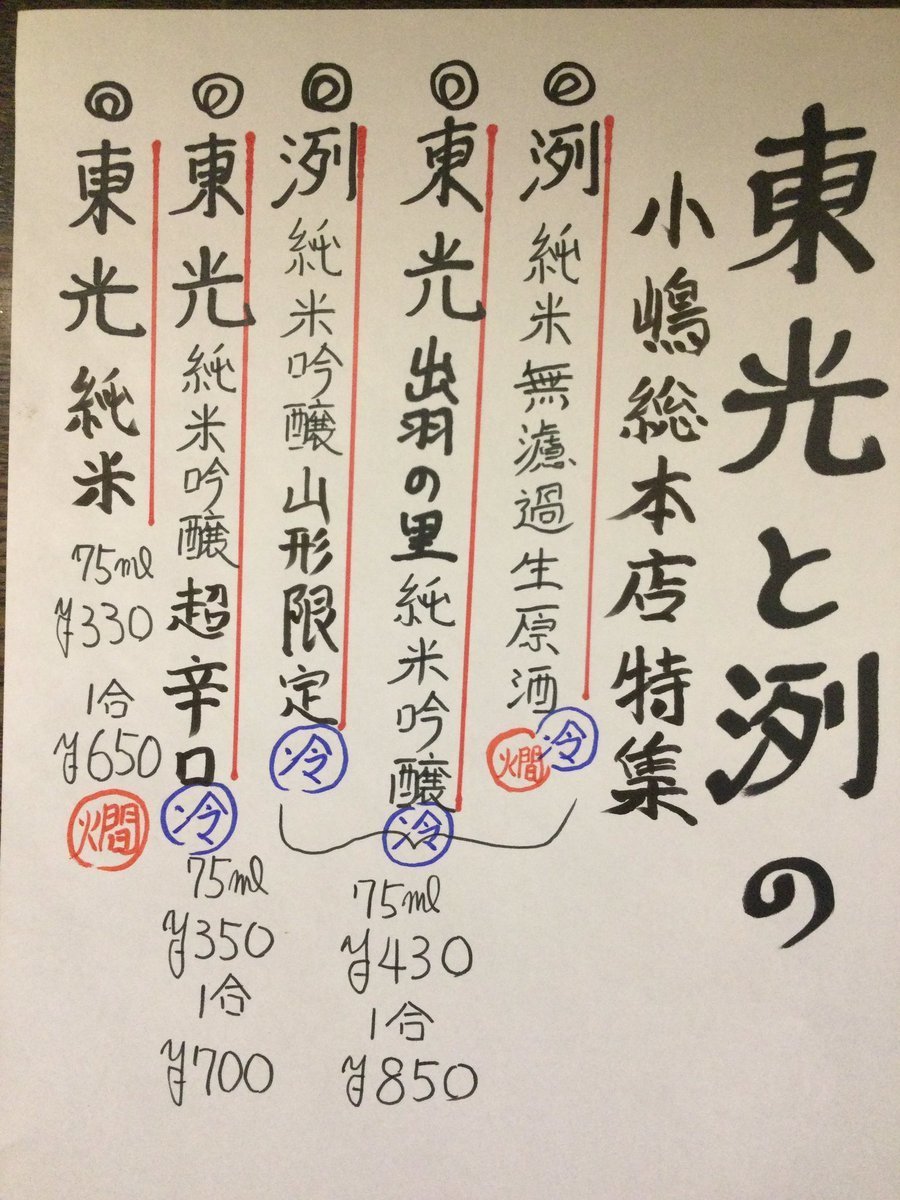 東光と洌の
小嶋総本店特集
◎洌 純米無濾過生原酒 冷 燗
◎東光出羽の里純米吟醸 冷
◎洌純米吟醸山形限定 冷
75ml
¥430
1合
¥850
◎東光純米吟醸超辛口 冷
75ml
¥350
1合
¥700
◎東光純米
75ml
¥330
1合
¥650
燗